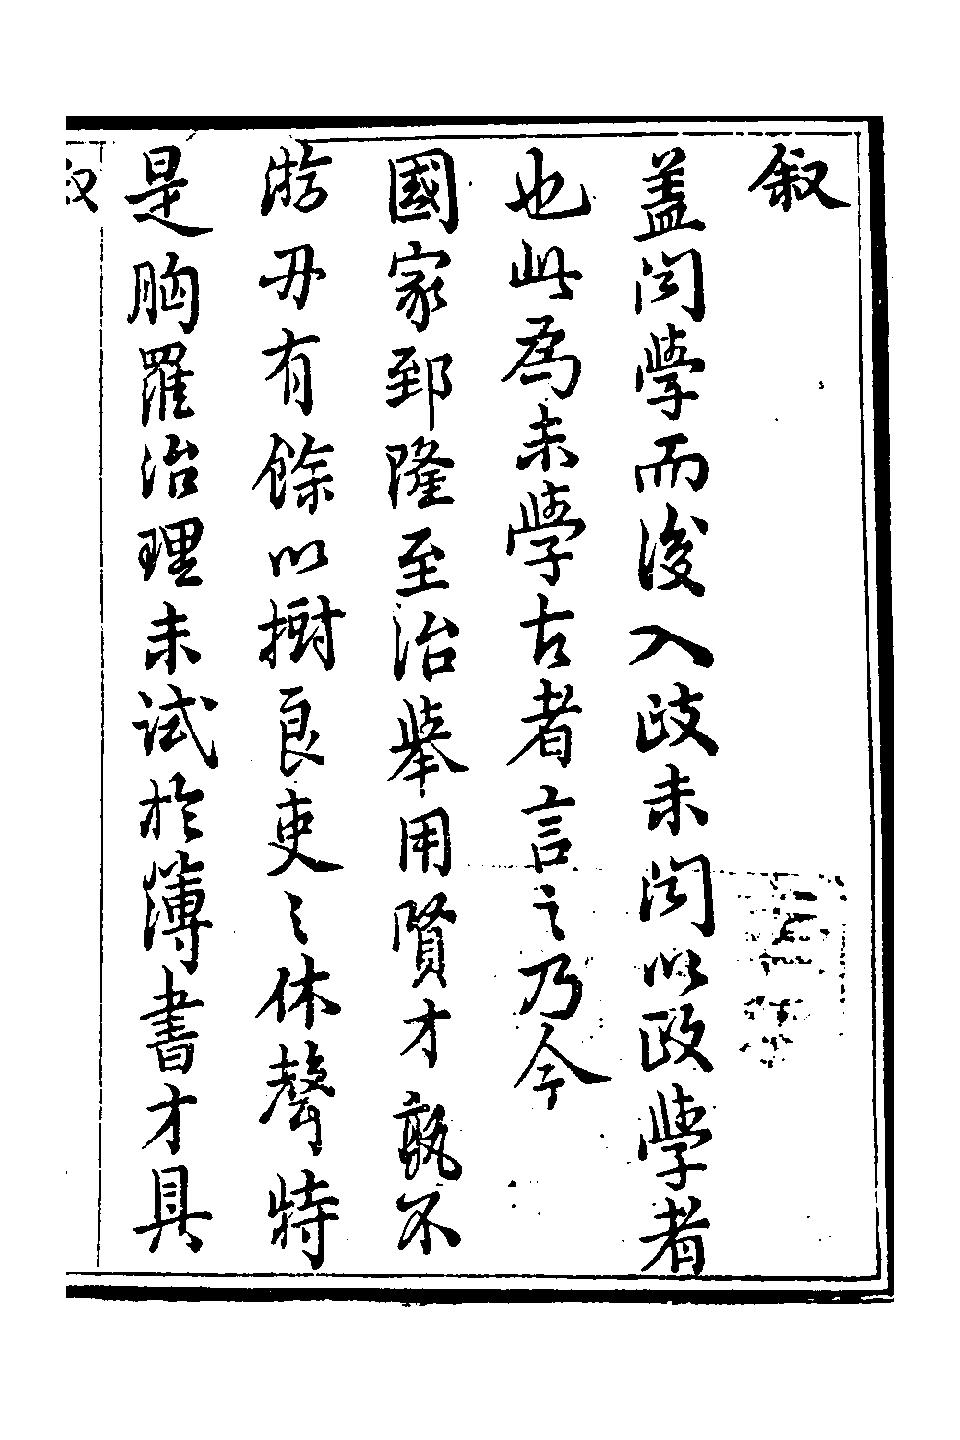 敘
蓋闻學而後入政未闻以政學者
也此為未學古者言之乃今
國家郅隆至治舉用賢才孰不
游刃有餘以樹良吏之休聲特
是胸羅治理未試於簿書才具
敘